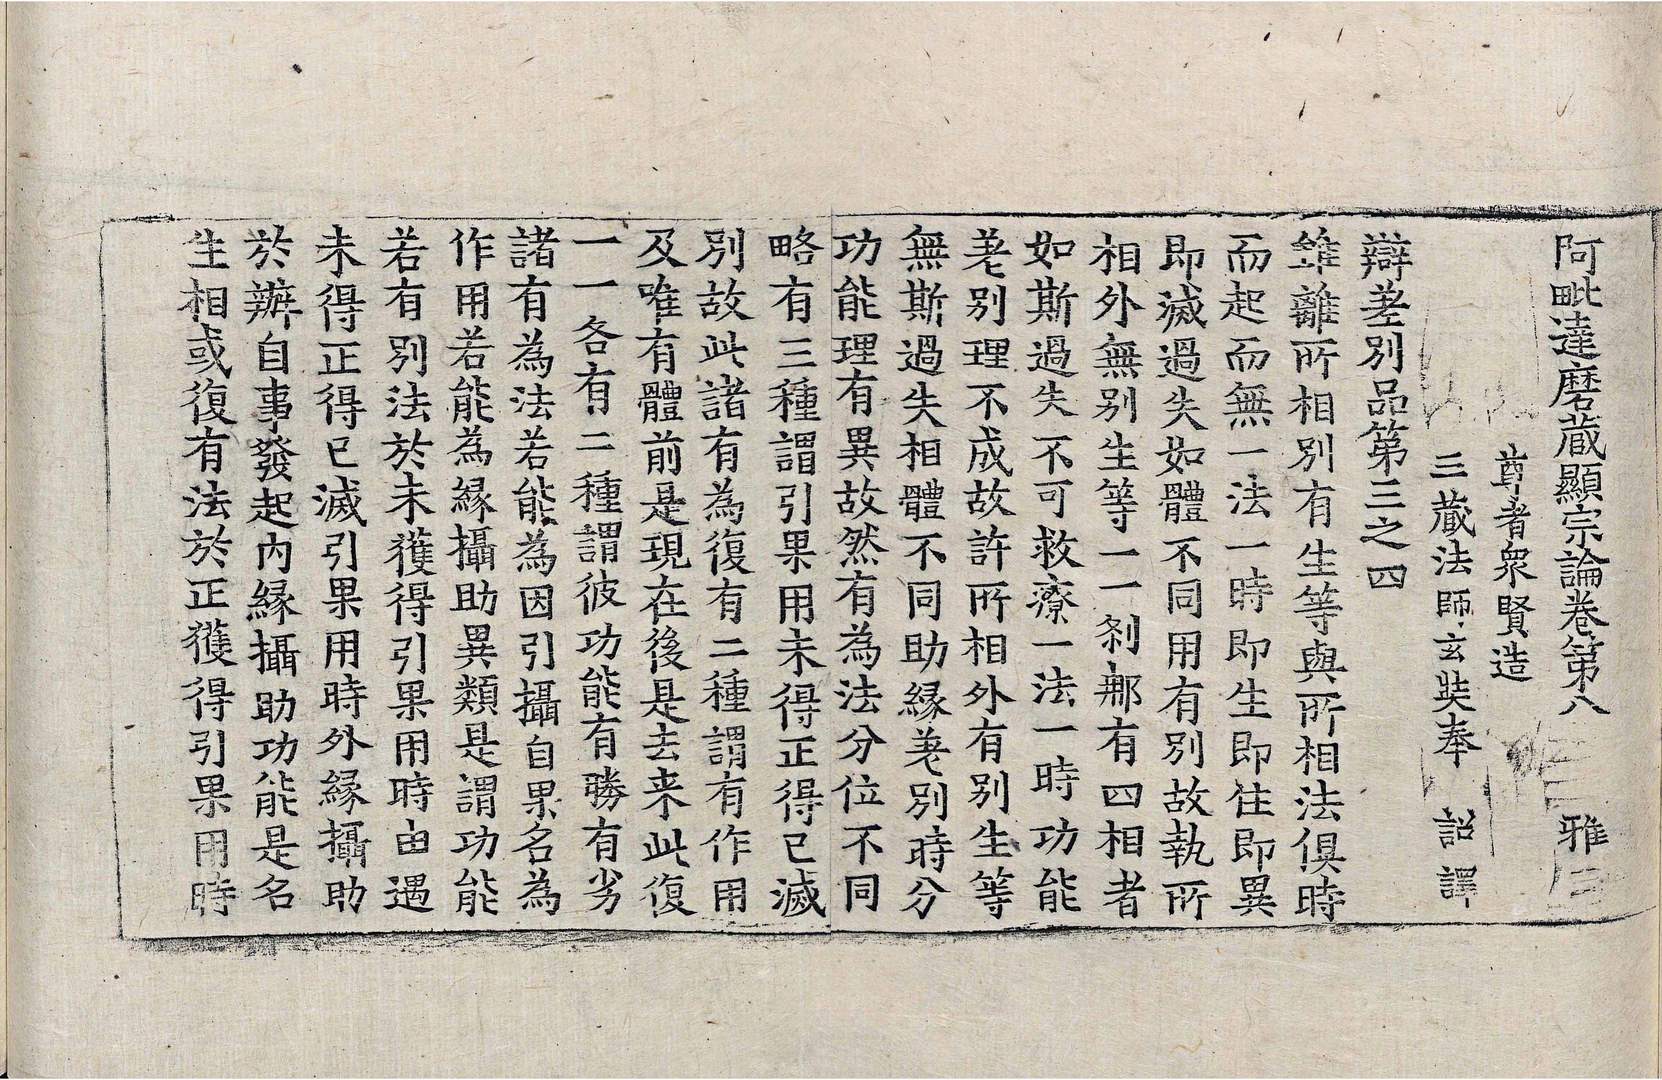 阿毗達磨蔵顯宗論卷第八 雅
尊者衆賢造
三蔵法師玄奘奉 詔譯
辯差別品第三之四
雖離所相別有生等與所相法俱時
而起而無一法一時即生即住即異
即滅過失如體不同用有別故執所
相外無別生等一一剎那有四相者
如斯過失不可救療一法一時功能
差別理不成故許所相外有別生等
無斯過失相體不同助縁差別時分
功能理有異故然有為法分位不同
略有三種謂引果用未得正得已滅
別故此諸有為復有二種謂有作用
及唯有體前是現在後是去来此復
一一各有二種謂彼功能有勝有劣
諸有為法若能為因引攝自果名為
作用若能為縁攝助異類是謂功能
若有別法於未獲得引果用時由遇
未得正得已滅引果用時外縁攝助
於辦自事發起內縁攝助功能是名
生相或復有法於正獲得引果用時